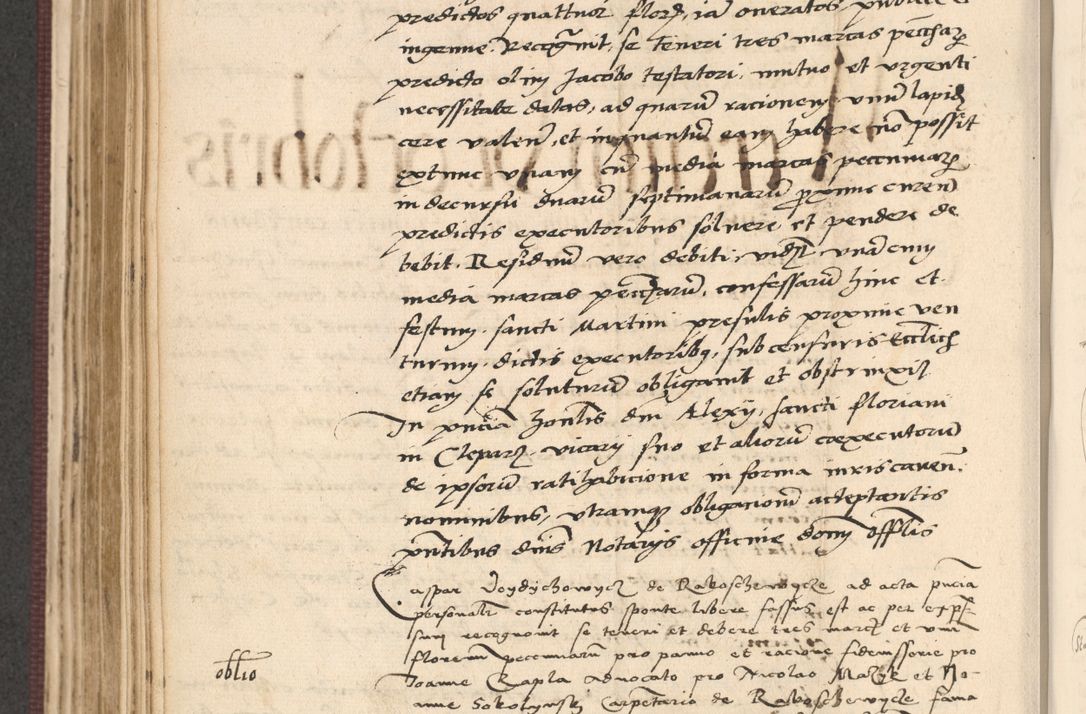 predictos quattuor flor, ia oneratos
ingenue Recognit, se teneri tres marcas peccãꝝ
predicto olim Jacobo testatori, mutuo et urgenti
necessitate datas, ad quarũ racionem unũ lapid
cere valen, et inquantũ eam habere nõ possit
extunc unam cũ media marcas pecuniarꝝ
in decursu duarũ septimanarũ proxime curen
predictis executoribus soluere et pendere de
bebit. Residuũ vero debiti, vidꝫ, unã cum
media marcas pecuniarũ, confessarũ hinc et
festum, sancti Martini presulis proxime ven
turum, dictis executoribꝫ, sub censuris Eccl̃ich
etiam se soluturũ obligauit et obstrinxit
In pñcia honl̃is dñi Alexij, sancti Floriani
in Cleparꝫ, vicarij suo et aliorũ coexecutorũ
de ipsorũ ratihabicione in forma iuris cauen,
nominibus, utramqꝫ obligacionẽ acceptantis
pñtibus dñis Notarijs officine domĩ Offl̃is
Caspar Voydychowycꝫ de Raboschewycze ad acta pñcia
personal̃r constitutus sponte libere fassus est ac per exp̃s
sum recognouit se teneri et debere tres marcꝫ et unũ
florenũ pecuniarum pro panno et racione fideiussorie pro
Joanne Kapla aduocato pro Nicolao et Jo-
anne Sokolynsky Carpetario de Raboschewycze fama
obl̃io